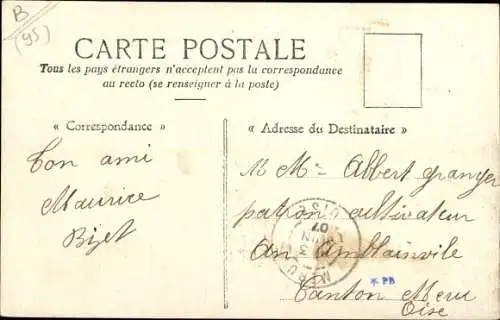 B
(95)
CARTE POSTALE
Tous les pays étrangers n'acceptent pas la correspondance
au recto (se renseigner à la poste)
« Correspondance »
Ton ami
Maurice
Bizet
« Adresse du Destinataire »
M Mr Albert granger
patron cultivateur
an Amblainville
Canton Meru
Oise
MERU
OISE
JUIN
07
* PB